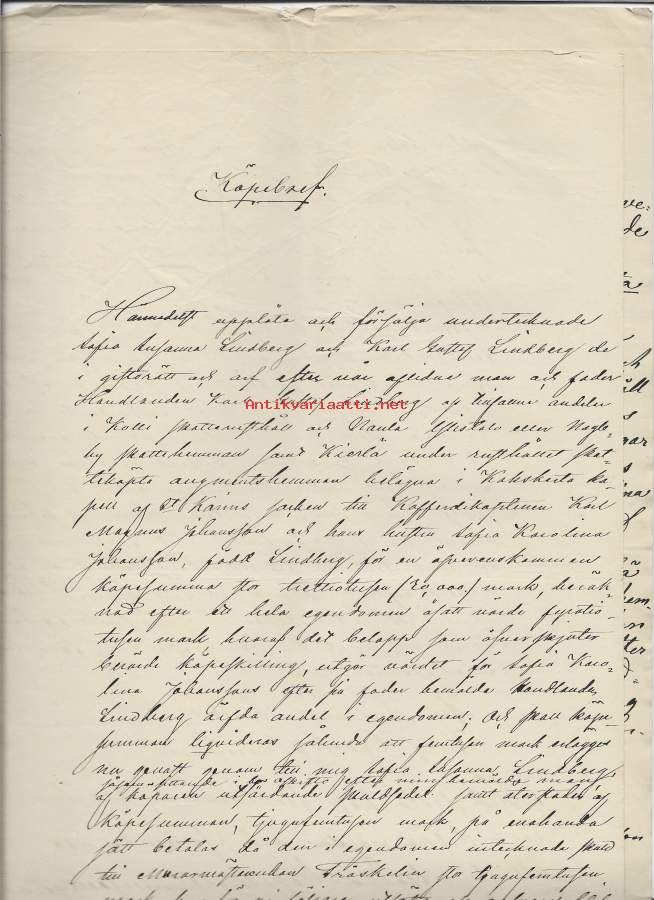 Köpebref.
Hännedelst upplåta och försälja undertecknade
Sofia Susanna Lindberg och Karl Gustaf Lindberg de
i giftorätt och arf efter vår aflidne man och fader
Handlanden Karl Gustaf Lindberg op tillfallne andelar
Antikvariaatti.net
i Kolli skatterusthåll och Nanla eller
by skattehemman samt Kierla under rusthållet skat-
teköpte augmentshemman belägna i Kakskerta ka-
pell af St Karins socken till Kofferdikaptenen Karl
Magnus Johansson och hans hustru Sofia Karolina
Johansson, född Lindberg, för en öfverenskommen
köpesumma stor trettiotusen (30,000) mark, beräk-
nad efter ett hela egendomen åsatt värde fyratio-
tusen mark hvaraf det belopp som öfverskjuter
berörde köpeskilling, utgör värdet för Sofia Karo-
lina Johanssons efter sin fader bemälda Handlanden
Lindberg ärfda andel i egendomen. Och skall köpe-
summan liqvideras sålunda att femtusen mark erlägges
nu genast genom till mig Sofia Susanna Lindberg,
såsom sittande i oskiftadt efter min bemälde man,
af köparen utfärdande skuldsedel samt återstoden af
köpesumman, tjugufemtusen mark, på enahanda
sätt betalas då den i egendomen intecknade skuld
till Murarmästarenkan Fräskelin stor tjugufemtusen
ve-
de
ta